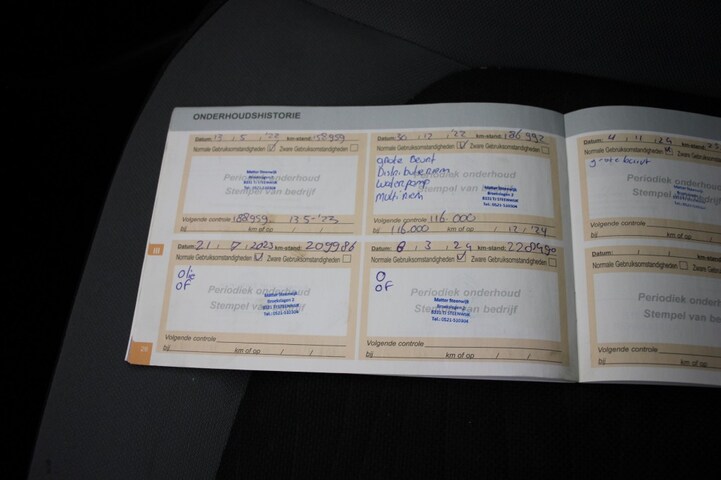 ONDERHOUDSHISTORIE
Datum: 13 / 5 / '22 km-stand: 158959
Normale Gebruiksomstandigheden Zware Gebruiksomstandigheden
Periodiek onderhoud
Stempel van bedrijf
Volgende controle 188959 13-5-'23
bij km of op / /
Datum: 30 / 12 / '22 km-stand: 186992
Normale Gebruiksomstandigheden Zware Gebruiksomstandigheden
grote Beurt
Distributieriem
waterpomp
multi Riem
Periodiek onderhoud
Stempel van bedrijf
Volgende controle 116.000
bij 116.000 km of op / 12 / '24
Datum: 4 / 11 / 24 km-stand:
Normale Gebruiksomstandigheden
grote beurt
Periodiek onderhoud
Stempel van
Volgende controle
bij km of op
III
Datum: 21 / 7 / 2023 km-stand: 209986
Normale Gebruiksomstandigheden Zware Gebruiksomstandigheden
olie
OF
Periodiek onderhoud
Stempel van bedrijf
Steenwijk
8331 TJ STEENWIJK
Tel.: 0521-510304
Volgende controle
bij km of op / /
Datum: 8 / 3 / 24 km-stand:
Normale Gebruiksomstandigheden Zware Gebruiksomstandigheden
O
OF
Periodiek onderhoud
Stempel van bedrijf
Steenwijk
8331 TJ STEENWIJK
Tel.: 0521-510304
Volgende controle
bij km of op / /
Datum: / /
Normale Gebruiksomstandigheden
Periodiek onderhoud
Stempel van
Volgende controle
bij km of op